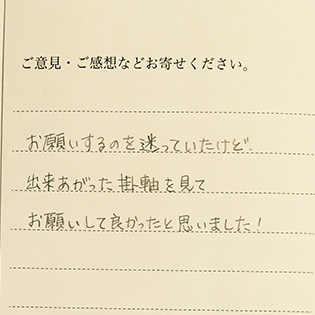 ご意見・ご感想などお寄せください。
お願いするのを迷っていたけど、
出来あがった掛軸を見て
お願いして良かったと思いました!